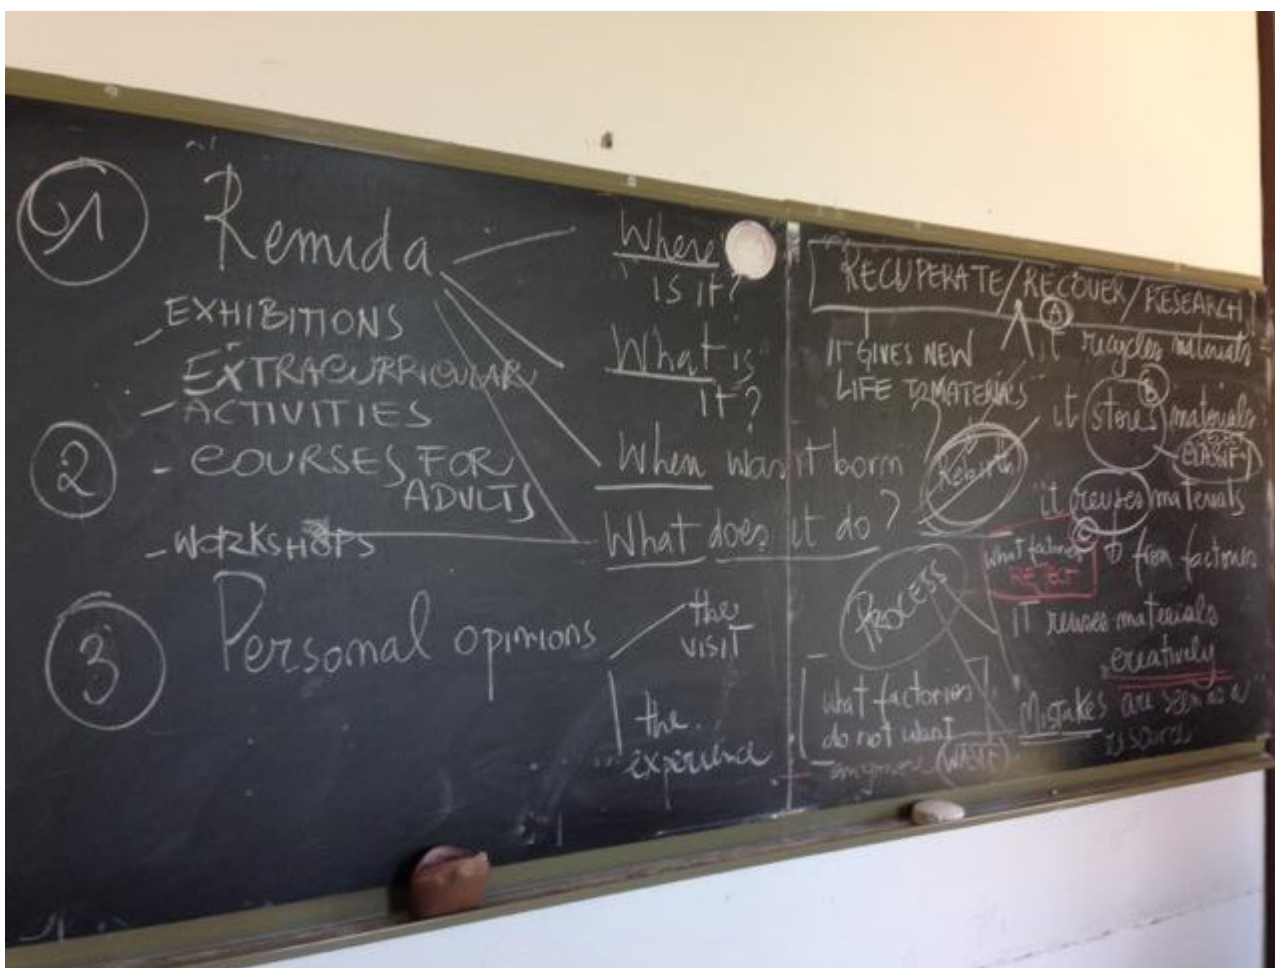 1
Remida
EXHIBITIONS
EXTRACURRICULAR
ACTIVITIES
2
COURSES FOR
ADULTS
WORKSHOPS
3
Personal opinions
the
VISIT
the
experience
Where
is it?
What is
it?
When was it born
What does it do?
RECUPERATE/RECOVER/RESEARCH
IT GIVES NEW
LIFE TO MATERIALS
A
it recycles materials
B
it stores materials
CLASSIFY
Rebirth
it reuses materials
C
from factories
what factories
REJECT
PROCESS
IT reuses materials
creatively
what factories
do not want
anymore WASTE
MISTAKES are seen as a